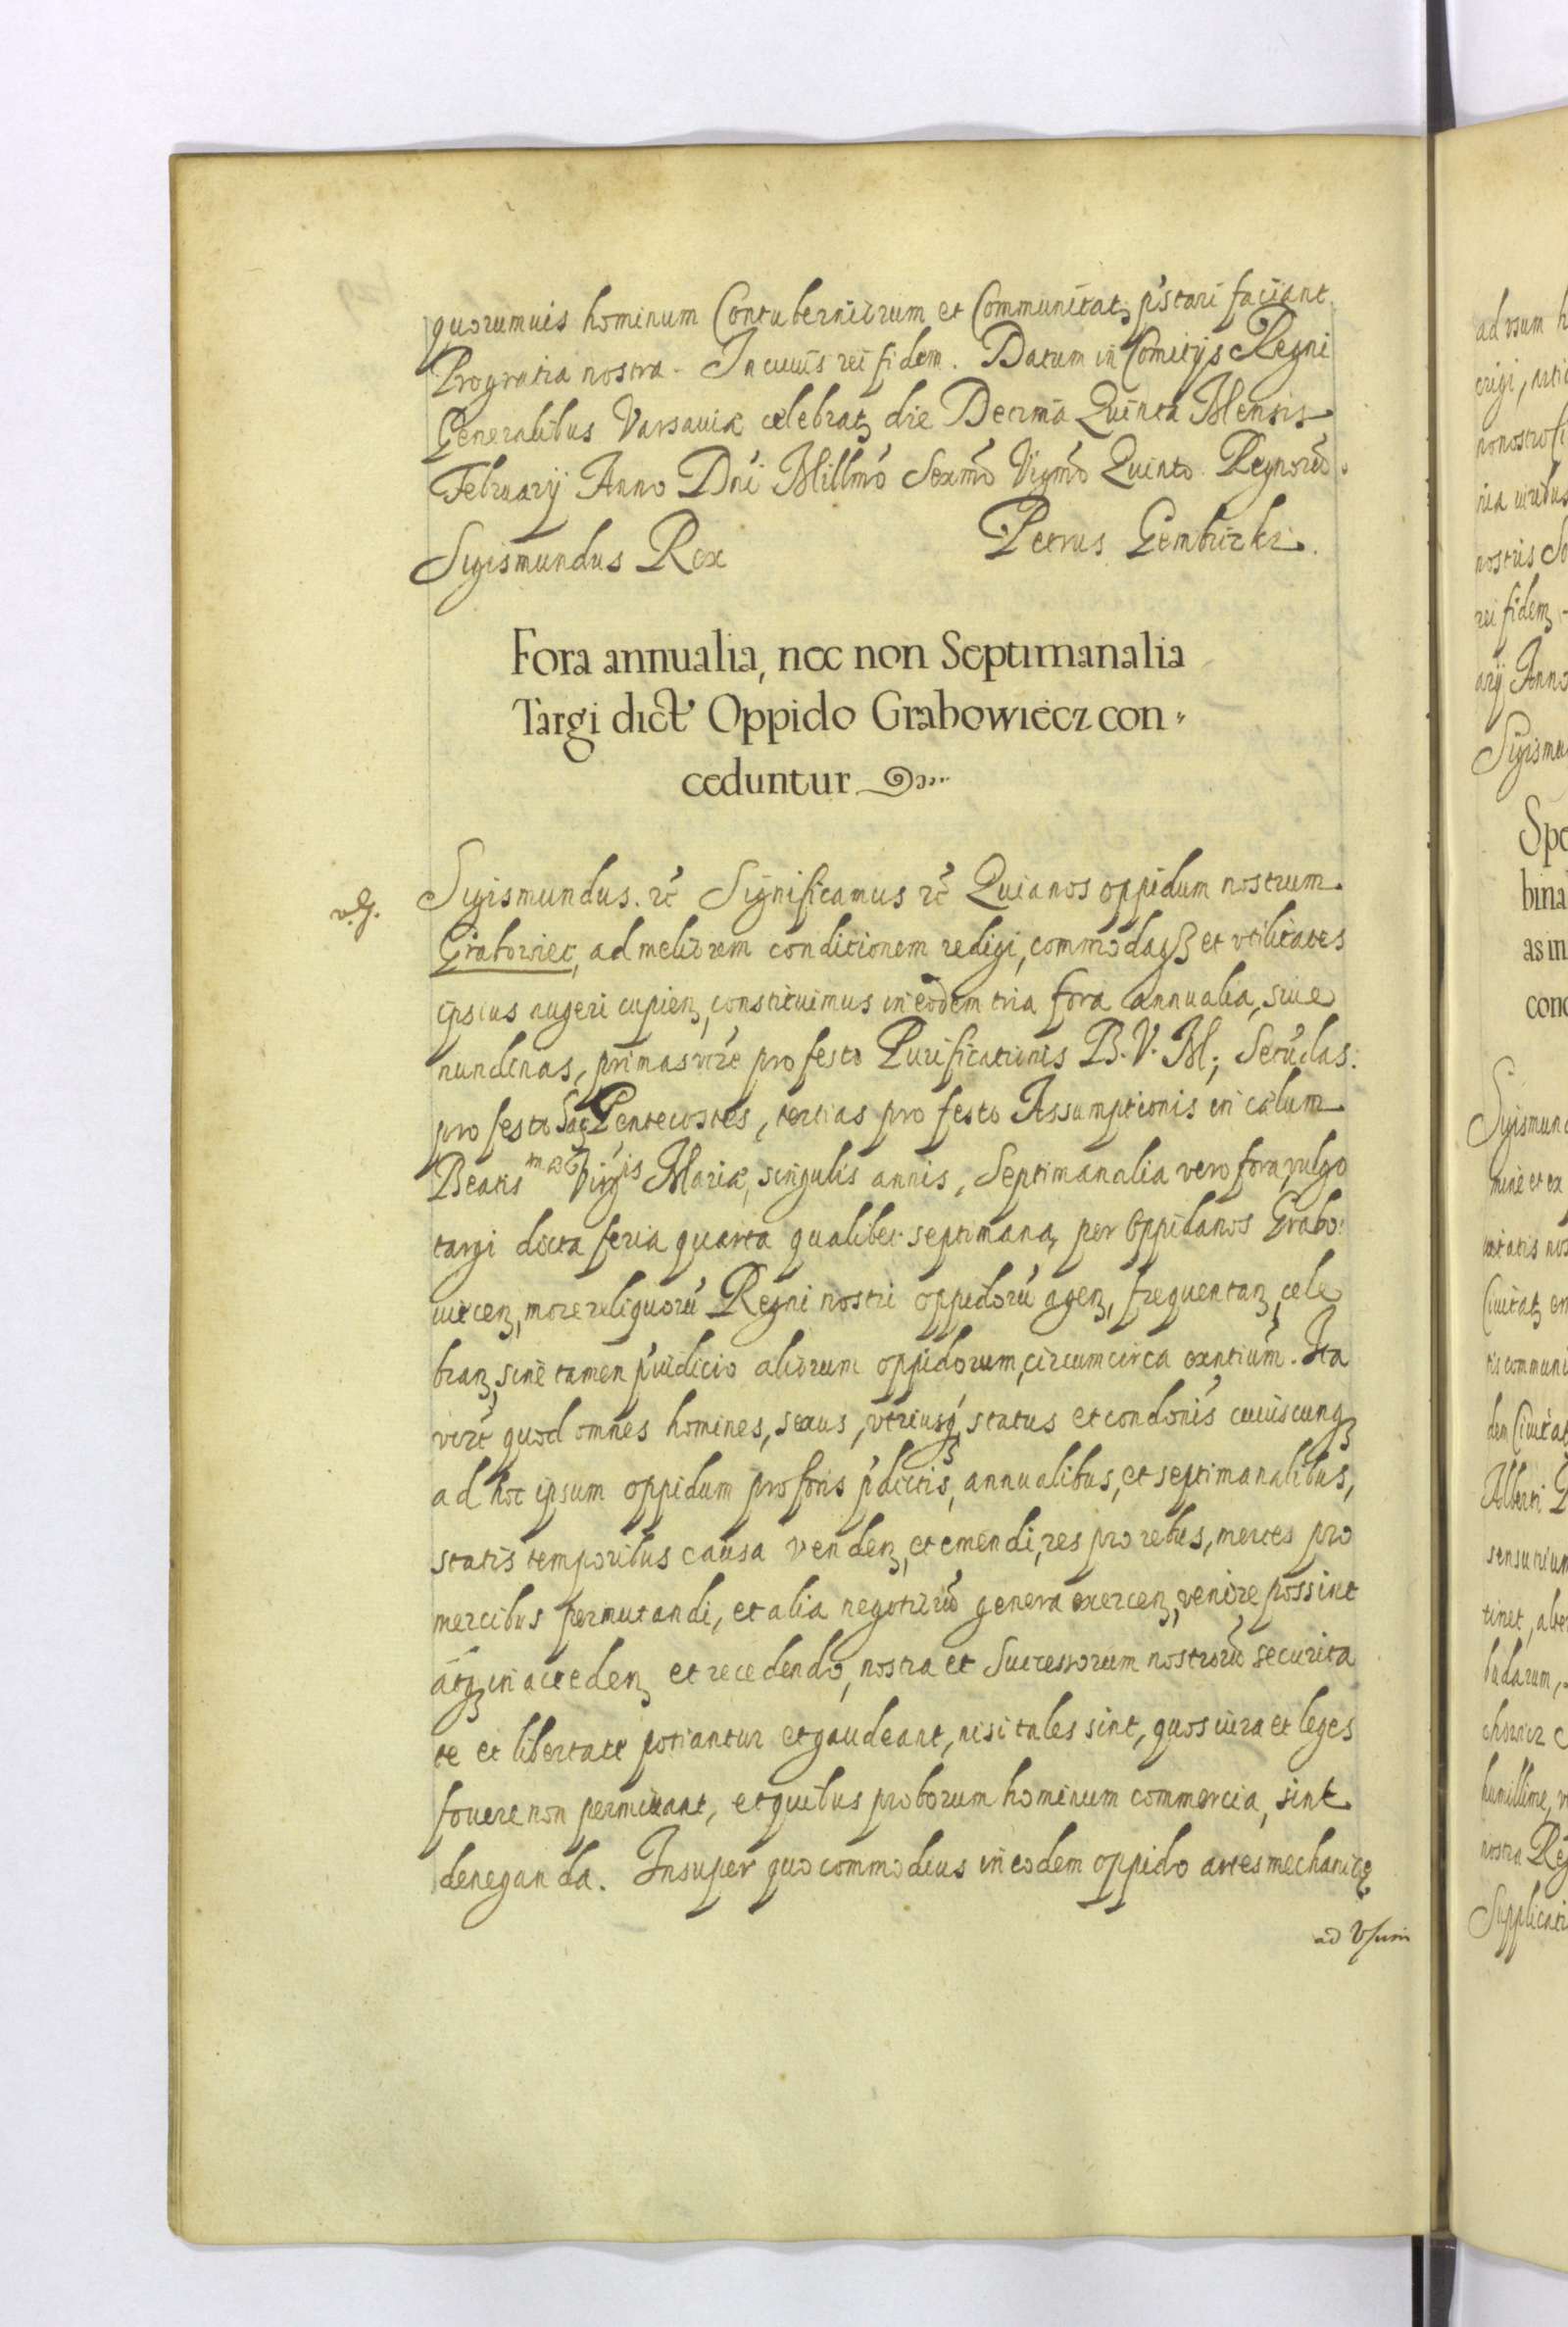 quorumuis hominum Contuberniorum et Communitatꝫ p'stari faciant.
Progratia nostra. In cuius rei fidem. Datum in Comitijs Regni
Generalibus Varsauiæ celebratꝫ die Decima Quinta Mensis
February Anno Dn̄i Millm̄o Sexm̄o Vigm̄o Quinto Regnorū.
Sigismundus Rex
Petrus Gembicki.
Fora annualia, nec non Septimanalia
Targi dict' Oppido Grabowiecz con
ceduntur
Sigismundus. rc̄ Significamus rc̄ Quia nos oppidum nostrum
Grabowiec, ad meliorem conditionem redigi, commodaqꝫ et vtilitates
ipsius augeri cupienꝫ, constituimus in eodem tria fora annualia, siue
nundinas, primas vizē pro festo Purificationis B. V. M; Secūdas.
pro festo Sacꝫ Pentecostes, tertias pro festo Assumptionis in cælum
Beatismæ Virgis Mariæ, singulis annis, Septimanalia vero fora, vulgo
targi dicta feria quarta qualibet septimana, per Oppidanos Grabo
uiecenꝫ, more reliquorū Regni nostri oppidorū agenꝫ, frequentanꝫ, cele
branꝫ, sine tamen p'iudicio aliorum oppidorum, circumcirca exn̄tium. Ita
vizt̄ quod omnes homines, sexus, vtriusqꝫ, status et condonis̄ cuiuscunqꝫ
ad hoc ipsum oppidum pro foris p'dictis, annualibus, et septimanalibus,
statis temporibus causa vendenꝫ, et emendi, res pro rebus, merces pro
mercibus permutandi, et alia negotiorū genera exercenꝫ, venire possint
atqꝫ in accedenꝫ et recedendo, nostra et Successorum nostrorū securita
te et libertate potiantur et gaudeant, nisi tales sint, quos iura et leges
fouere non permittant, et quibus proborum hominum commercia, sint
deneganda. Insuper quo commodius in eodem oppido artes mechanicę
ad Vsum